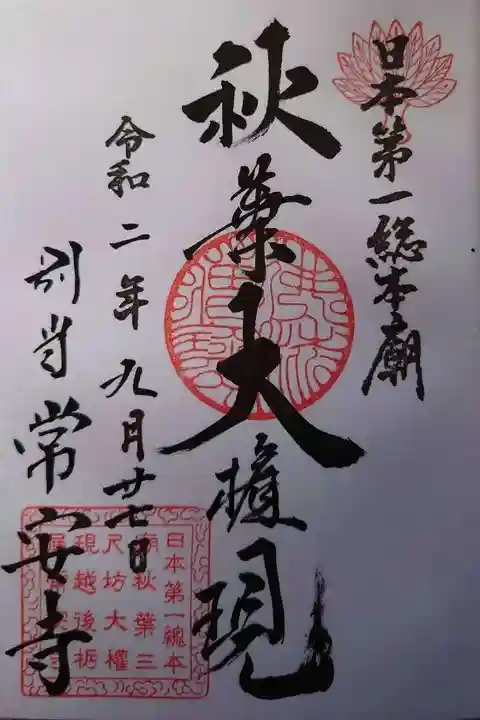 日本第一総本廟
秋葉大権現
令和二年九月廿七日
別当常安寺
日本第一総本
廟秋葉三
尺坊大權
現越後栃